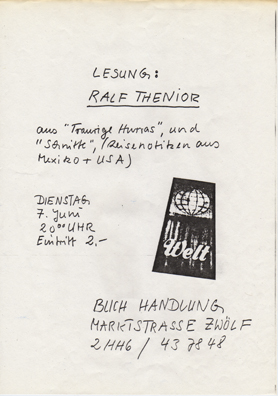 LESUNG:
RALF THENIOR
aus "Traurige Hurras", und
"Schnitte", (Reisenotizen aus
Mexiko + USA)
DIENSTAG
7. Juni
20⁰⁰ UHR
Eintritt 2,-
Welt
BUCH HANDLUNG
MARKTSTRASSE ZWÖLF
2 HH 6 / 43 78 48